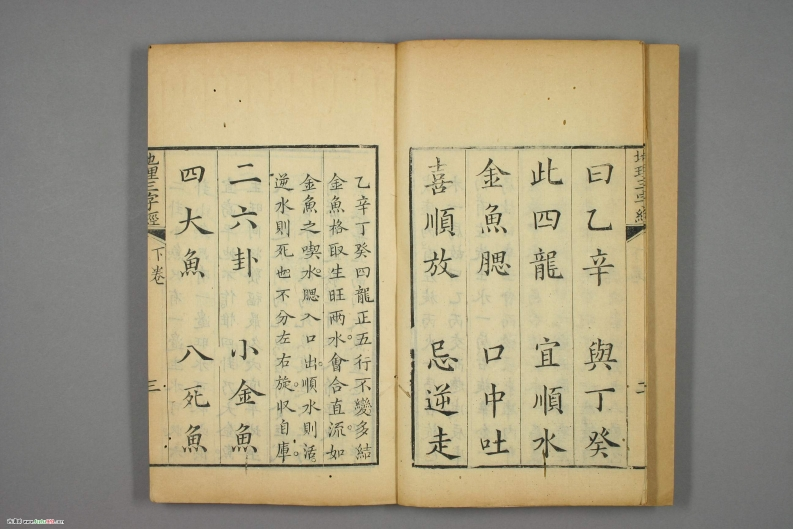 地理三字經
二
曰乙辛 與丁癸
此四龍 宜順水
金魚腮 口中吐
喜順放 忌逆走
乙辛丁癸四龍正五行不變多結
金魚格取生旺兩水會合直流如
金魚之喫水腮入口出順水則活
逆水則死也不分左右旋収自庫
二六卦 小金魚
四大魚 八死魚
地理三字經
下卷
三